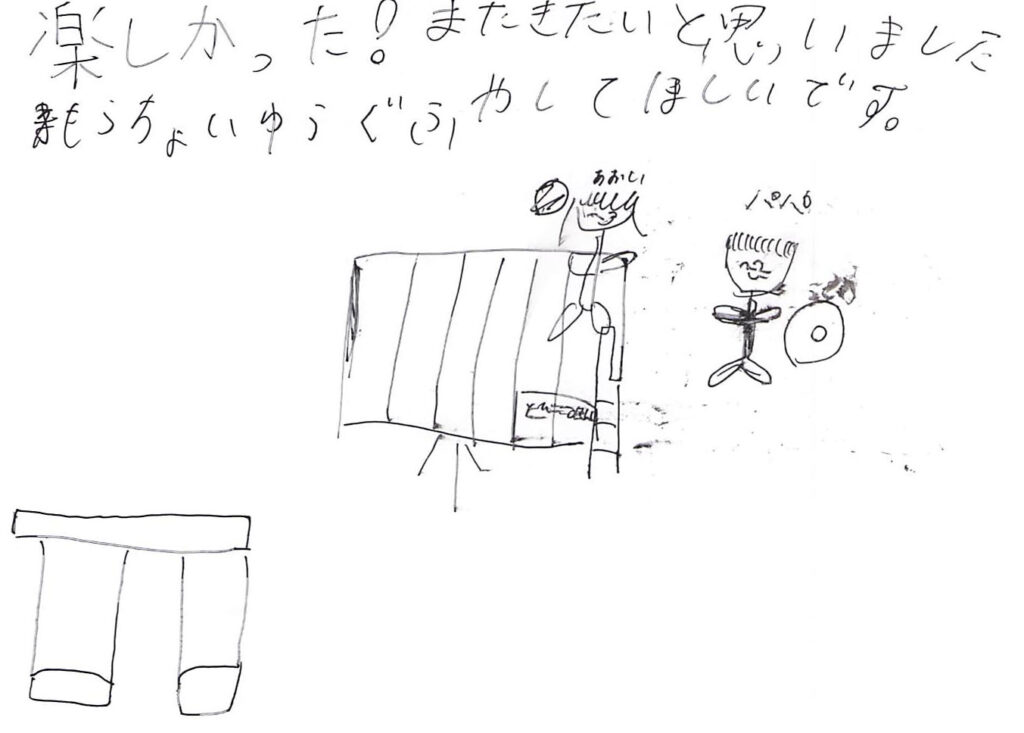 楽しかった！またきたいと思いました
もうちょいゆうぐふやしてほしいです。
あおい
パパ